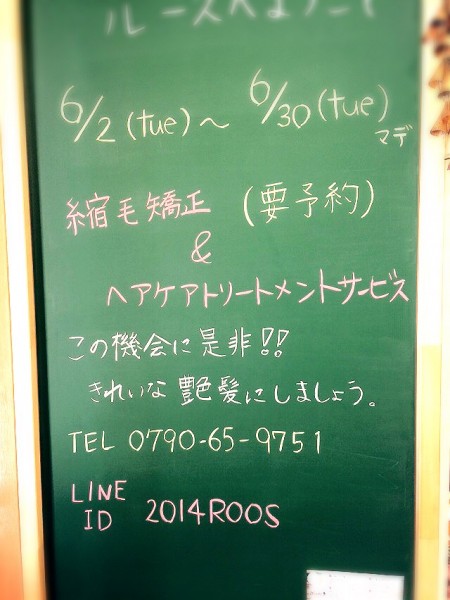 6/2(tue)～6/30(tue)
マデ
縮毛矯正(要予約)
&
ヘアケアトリートメントサービス
この機会に是非!!
きれいな艶髪にしましょう。
TEL 0790-65-9751
LINE
ID 2014ROOS